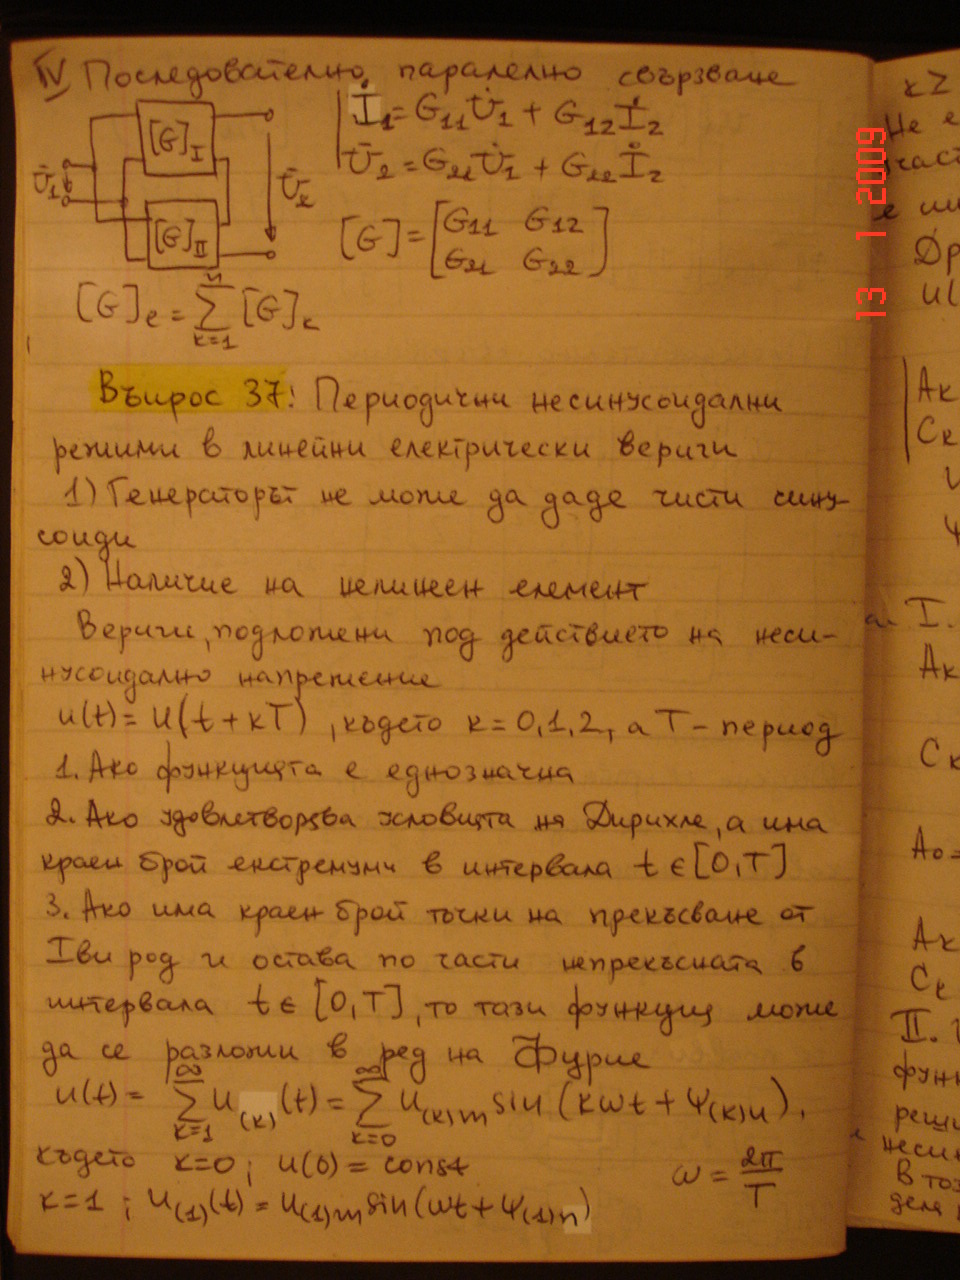 IV Последователно паралелно свързване
İ₁ = G₁₁U̇₁ + G₁₂İ₂
U̇₂ = G₂₁U̇₁ + G₂₂İ₂
[G]I
U̇₁
U̇₂
[G]II
[G] = [G₁₁ G₁₂
G₂₁ G₂₂]
[G]e = n∑k=1 [G]k
Въпрос 37: Периодични несинусоидални
режими в линейни електрически вериги
1) Генераторът не може да даде чисти сину-
соиди
2) Наличие на нелинеен елемент
Вериги, подложени под действието на неси-
нусоидално напрежение
u(t) = u(t + kT), където k = 0,1,2, а T – период
1. Ако функцията е еднозначна
2. Ако удовлетворява условията на Дирихле, а има
краен брой екстремуми в интервала t ∈ [0,T]
3. Ако има краен брой точки на прекъсване от
Iви род и остава по части непрекъсната в
интервала t ∈ [0,T], то тази функция може
да се разложи в ред на Фурие
u(t) = ∞∑k=1 u(k)(t) = ∞∑k=0 u(k)m sin (kωt + ψ(k)u),
където k=0 ; u(0) = const
ω = 2π/T
k=1 ; u(1)(t) = u(1)m sin(ωt + ψ(1)n)
13 1 2009
Не е
част
Др
u(
Ак
Ск
I.
Ак
Ск
A₀=
Ак
Ск
II.
функ
реши
несин
В тоз
дела